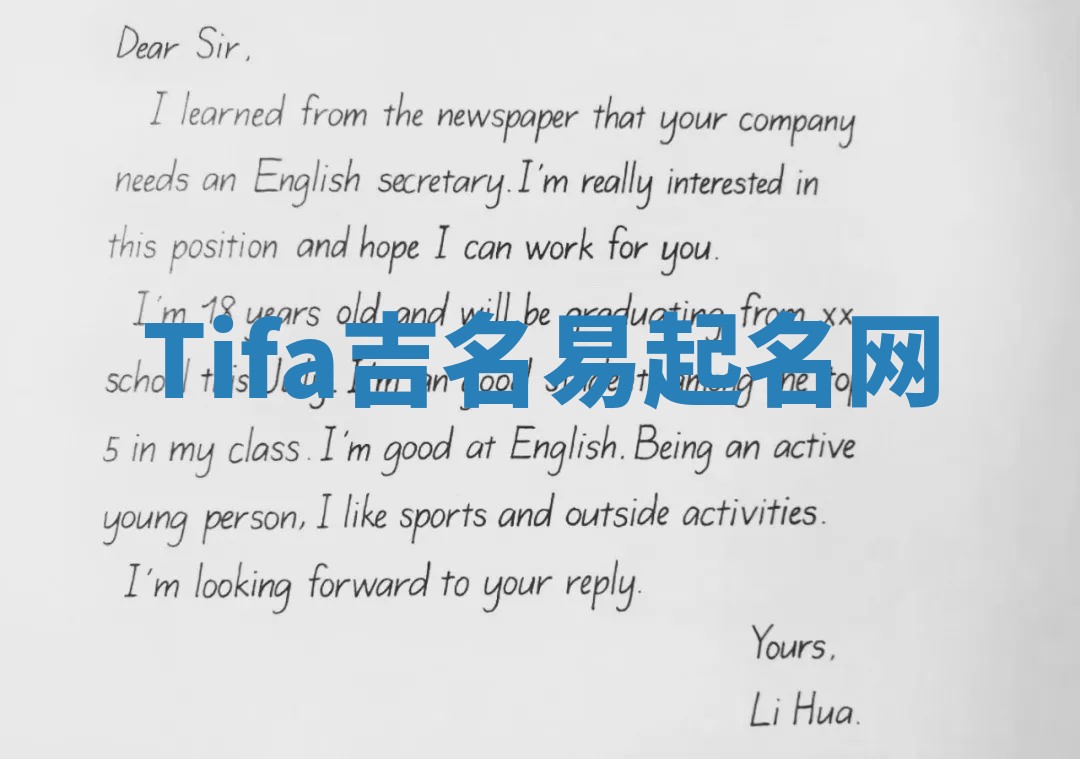 Dear Sir,
I learned from the newspaper that your company
needs an English secretary. I'm really interested in
this position and hope I can work for you.
I'm 18 years old and will be graduating from xx
Tifa吉名易起名网
school this July. I'm an good student among the top
5 in my class. I'm good at English. Being an active
young person, I like sports and outside activities.
I'm looking forward to your reply.
Yours,
Li Hua.